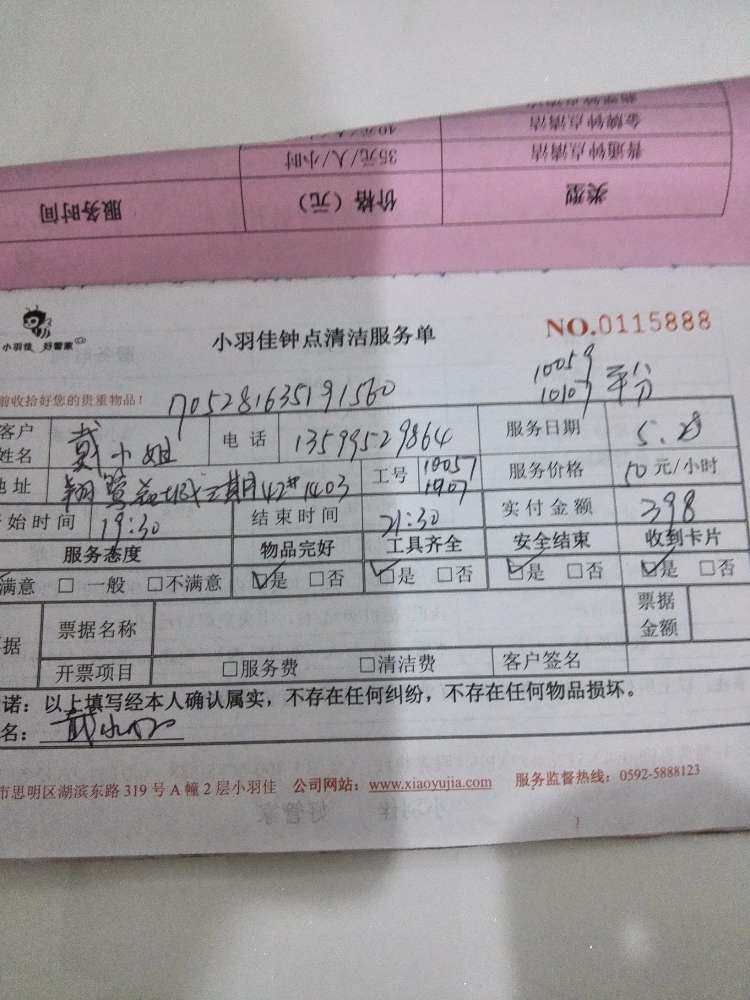 普通钟点清洁 35元/人/小时
金牌钟点清洁
类型 价格（元） 服务时间
小羽佳 好管家
小羽佳钟点清洁服务单
NO.0115888
前收拾好您的贵重物品！
705281635191560
10059
10107 平分
客户姓名 戴小姐 电话 13599529864 服务日期 5.29
地址 三期42#1403 工号 10057 服务价格 50元/小时
始时间 19:30 结束时间 21:30 实付金额 398
服务态度 物品完好 工具齐全 安全结束 收到卡片
满意 □一般 □不满意 ☑是 □否 ☑是 □否 ☑是 □否 ☑是 □否
据 票据名称 票据金额
开票项目 □服务费 □清洁费 客户签名
诺：以上填写经本人确认属实，不存在任何纠纷，不存在任何物品损坏。
名：戴小姐
市思明区湖滨东路319号A幢2层小羽佳 公司网站：www.xiaoyujia.com 服务监督热线：0592-5888123